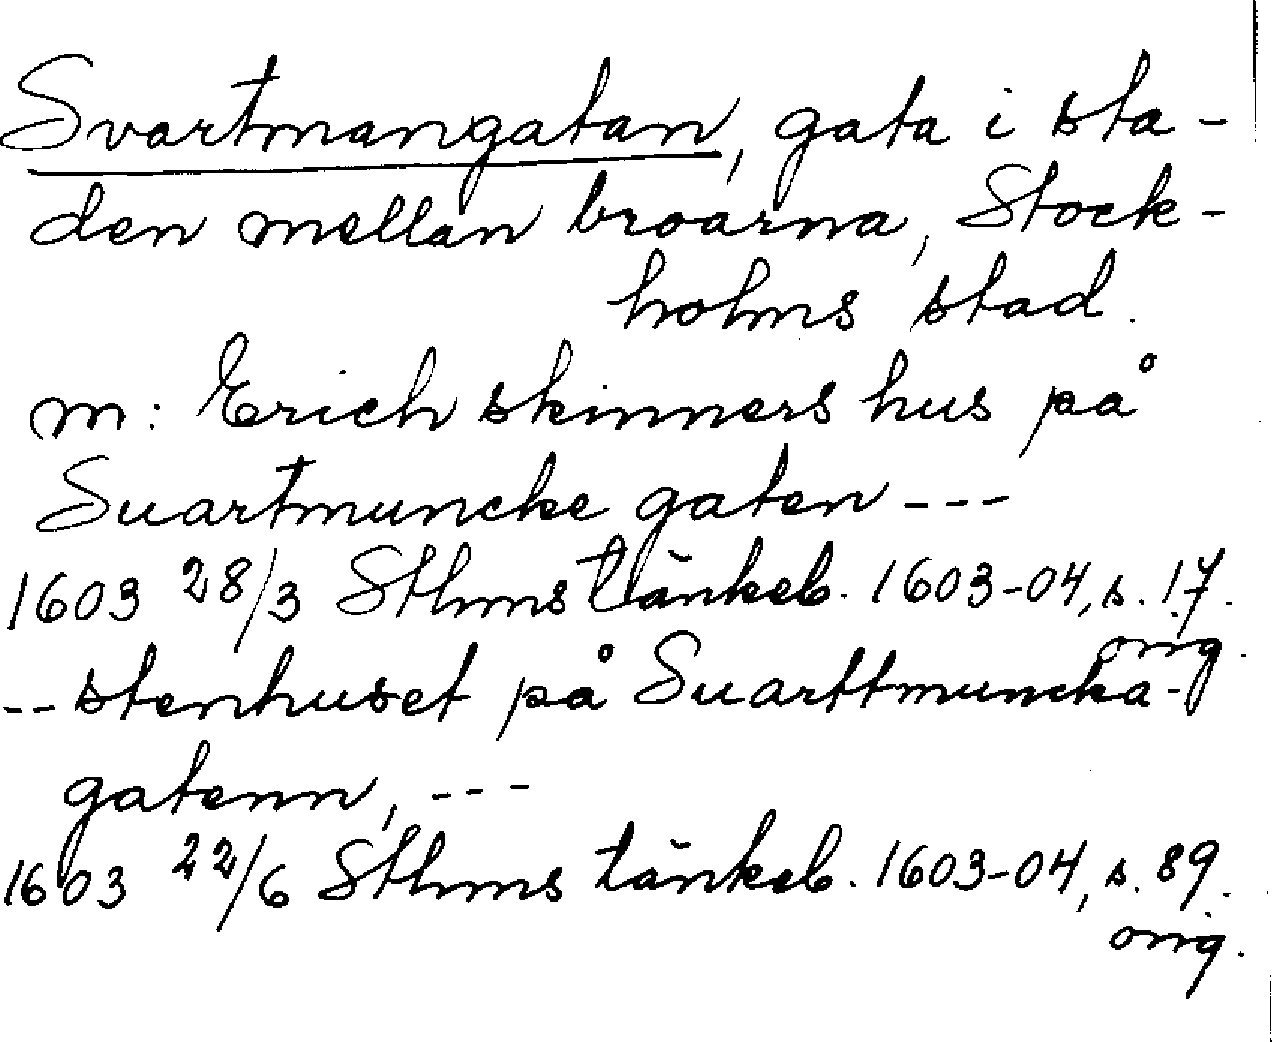 Svartmangatan, gata i sta-
den mellan broarna, Stock-
holms stad.
m: Erich skinners hus på
Suartmuncke gaten ---
1603 28/3 Sthms tänkeb. 1603-04, s. 17.
orig.
-- stenhuset på Suarttmuncka-
gatenn, ---
1603 22/6 Sthms tänkeb. 1603-04, s. 89.
orig.